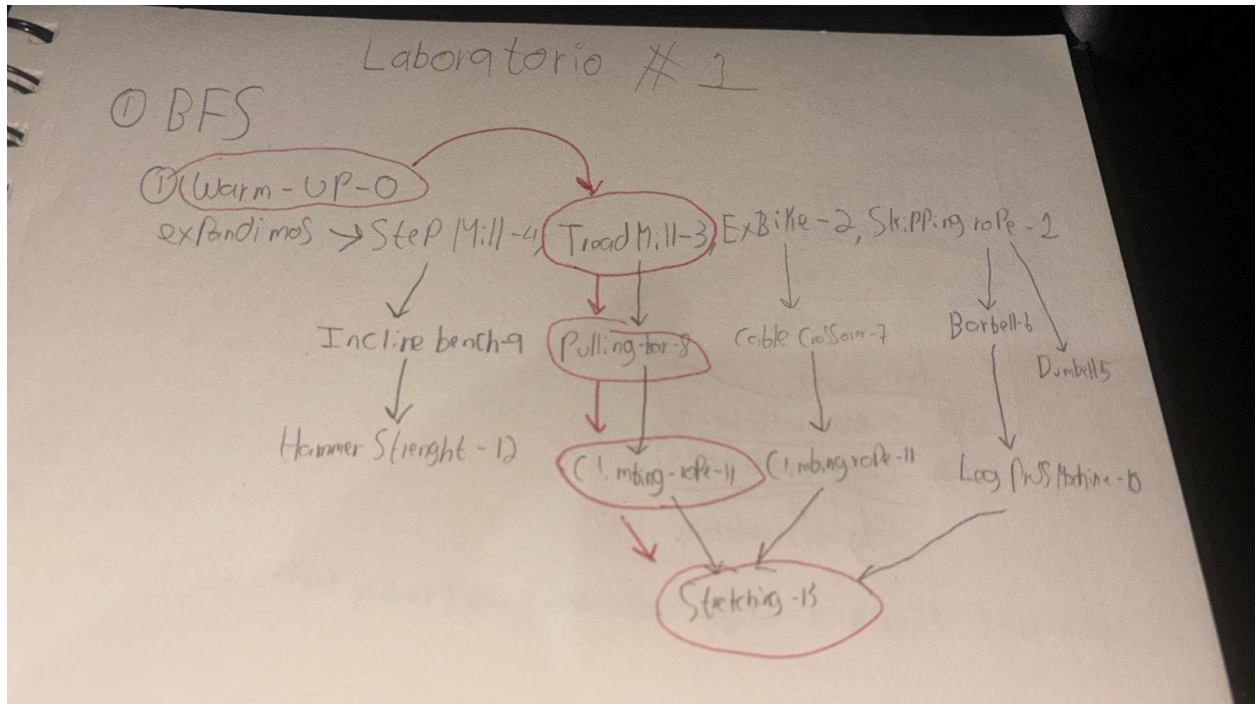 Laboratorio # 1
① BFS
① Warm-UP-0
expandimos → Step Mill-4, TroadMill-3, ExBike-2, Skipping rope-1
Inclire bench-9 Pulling-bar-8 Cable Crossover-7 Barbell-6
Dumbell5
Hammer Strenght-12 Climbing-rope-11 Climbing rope-11 Leg Press Machine-10
Stretching-13